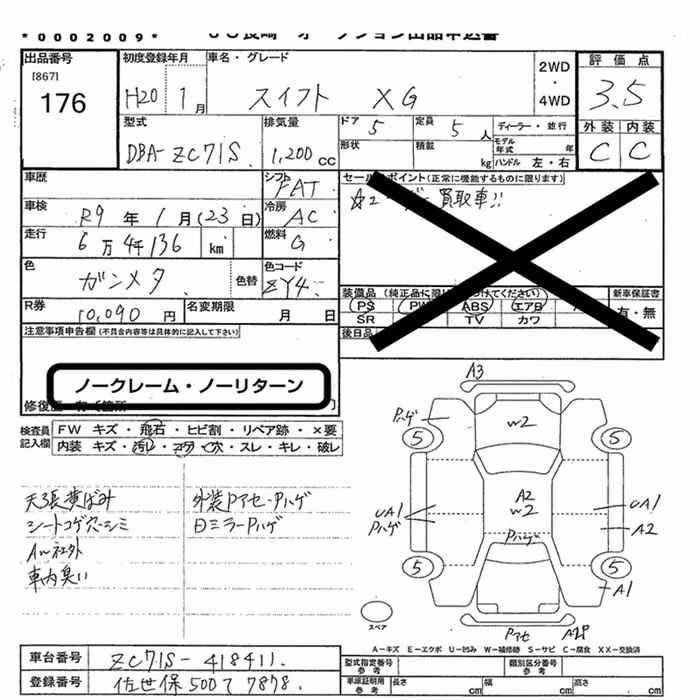 *0002009* JU長崎 オークション出品申込書
出品番号 初度登録年月 車名・グレード 2WD・4WD 評価点
[867] 176 H20 1月 スイフト XG 3.5
型式 排気量 ドア 5 定員 5人 ディーラー・並行 外装 内装
DBA-ZC71S 1,200cc 形状 積載 kg モデル年式 年 ハンドル 左・右 C C
車歴 シフト FAT セールスポイント(正常に機能するものに限ります)
車検 R9年1月(23日) 冷房 AC 買取車!!
走行 6万4千136km 燃料 G
色 ガンメタ 色替 色コード ZY4
R券 10,090円 名変期限 月 日 装備品 新車保証書
PS PW ABS エアB 有・無
SR TV カワ
注意事項申告欄(不具合内容等は具体的に記入して下さい) 後日品
ノークレーム・ノーリターン
検査員記入欄 FW キズ・飛石・ヒビ割・リペア跡・×要
内装 キズ・汚レ・コゲ穴・スレ・キレ・破レ
天張黄ばみ 外装Pアセ・Pハゲ
シートコゲ穴・シミ Dミラーハゲ
AW社外
車内臭い
A3
Pハゲ W2
5 5
A2
W2
UA1 UA1
Pハゲ A2
Pハゲ
5 5
A1
スペア Pアセ
A-キズ E-エクボ U-凹み W-補修跡 S-サビ C-腐食 XX-交換済
車台番号 ZC71S-418411 型式指定番号 参考 類別区分番号 参考
登録番号 佐世保500て7878 車庫証明用 参考 長さ cm 幅 cm 高さ cm